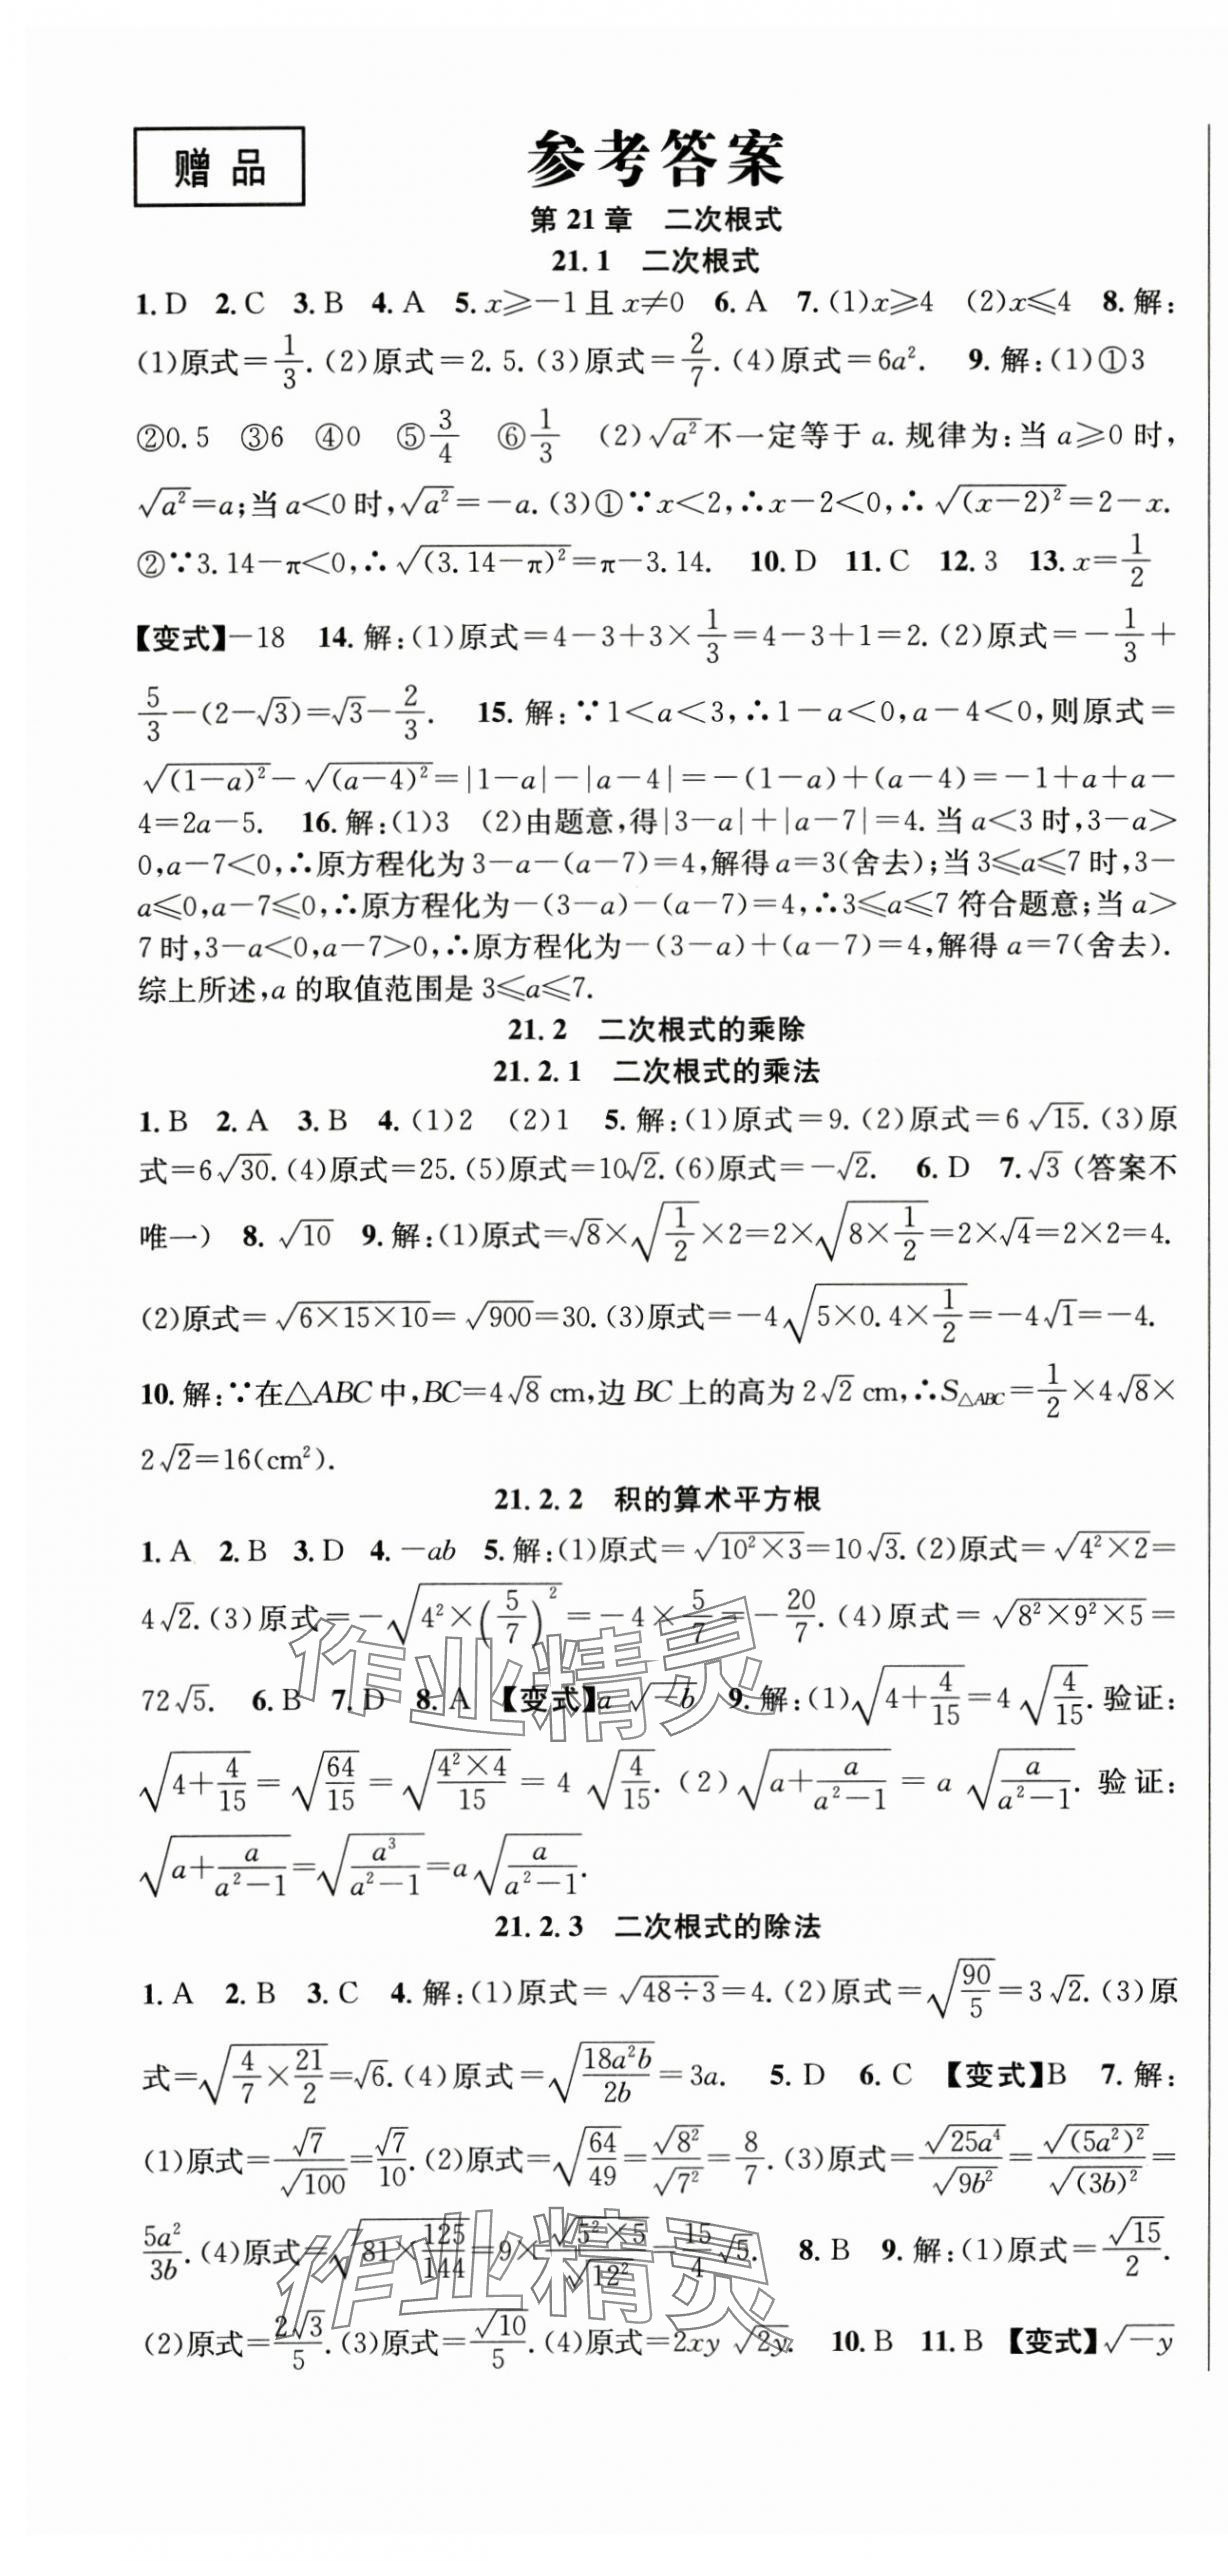 赠 品
参考答案
第 21 章　二次根式
21.1　二次根式
1. D 2. C 3. B 4. A 5. x⩾−1 且 x≠0 6. A 7. (1)x⩾4 (2)x⩽4 8. 解:
(1)原式=1/3. (2)原式=2.5. (3)原式=2/7. (4)原式=6a². 9. 解:(1)①3
②0.5 ③6 ④0 ⑤3/4 ⑥1/3 (2)√(a²)不一定等于 a. 规律为:当 a⩾0 时,
√(a²)=a;当 a<0 时,√(a²)=−a. (3)①∵x<2,∴x−2<0,∴√((x−2)²)=2−x.
②∵3.14−π<0,∴√((3.14−π)²)=π−3.14. 10. D 11. C 12. 3 13. x=1/2
【变式】−18 14. 解:(1)原式=4−3+3×1/3=4−3+1=2. (2)原式=−1/3+
5/3−(2−√3)=√3−2/3. 15. 解:∵1<a<3,∴1−a<0,a−4<0,则原式=
√((1−a)²)−√((a−4)²)=|1−a|−|a−4|=−(1−a)+(a−4)=−1+a+a−
4=2a−5. 16. 解:(1)3 (2)由题意,得|3−a|+|a−7|=4. 当 a<3 时,3−a>
0,a−7<0,∴原方程化为 3−a−(a−7)=4,解得 a=3(舍去);当 3⩽a⩽7 时,3−
a⩽0,a−7⩽0,∴原方程化为−(3−a)−(a−7)=4,∴3⩽a⩽7 符合题意;当 a>
7 时,3−a<0,a−7>0,∴原方程化为−(3−a)+(a−7)=4,解得 a=7(舍去).
综上所述,a 的取值范围是 3⩽a⩽7.
21.2　二次根式的乘除
21.2.1　二次根式的乘法
1. B 2. A 3. B 4. (1)2 (2)1 5. 解:(1)原式=9. (2)原式=6√15. (3)原
式=6√30. (4)原式=25. (5)原式=10√2. (6)原式=−√2. 6. D 7. √3 (答案不
唯一) 8. √10 9. 解:(1)原式=√8×√(1/2)×2=2×√(8×1/2)=2×√4=2×2=4.
(2)原式=√(6×15×10)=√900=30. (3)原式=−4√(5×0.4×1/2)=−4√1=−4.
10. 解:∵在△ABC 中,BC=4√8 cm,边 BC 上的高为 2√2 cm,∴S△ABC=1/2×4√8×
2√2=16(cm²).
21.2.2　积的算术平方根
1. A 2. B 3. D 4. −ab 5. 解:(1)原式=√(10²×3)=10√3. (2)原式=√(4²×2)=
4√2. (3)原式=−√(4²×(5/7)²)=−4×5/7=−20/7. (4)原式=√(8²×9²×5)=
72√5. 6. B 7. D 8. A 【变式】a√(−b) 9. 解:(1)√(4+4/15)=4√(4/15). 验证:
√(4+4/15)=√(64/15)=√((4²×4)/15)=4√(4/15). (2)√(a+a/(a²−1))=a√(a/(a²−1)). 验证:
√(a+a/(a²−1))=√(a³/(a²−1))=a√(a/(a²−1)).
21.2.3　二次根式的除法
1. A 2. B 3. C 4. 解:(1)原式=√(48÷3)=4. (2)原式=√(90/5)=3√2. (3)原
式=√(4/7×21/2)=√6. (4)原式=√(18a²b/2b)=3a. 5. D 6. C 【变式】B 7. 解:
(1)原式=√7/√100=√7/10. (2)原式=√(64/49)=√(8²)/√(7²)=8/7. (3)原式=√(25a⁴)/√(9b²)=√((5a²)²)/√((3b)²)=
5a²/3b. (4)原式=√(81×125/144)=9×√(5²×5)/√(12²)=15/4√5. 8. B 9. 解:(1)原式=√15/2.
(2)原式=2√3/5. (3)原式=√10/5. (4)原式=2xy√(2y). 10. B 11. B 【变式】√(−y)
作业精灵
作业精灵